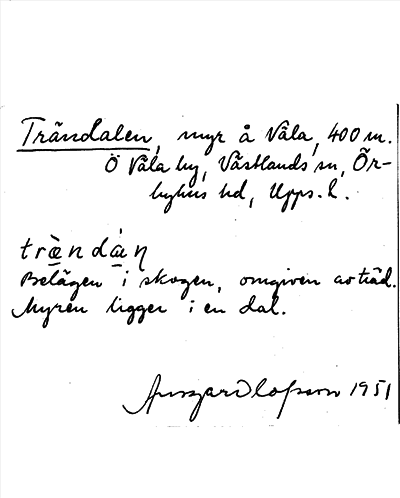 Trändalen, myr å Våla, 400 m.
Ö Våla by, Västlands sn, Ör-
byhus hd, Upps. l.
trèndàn
Belägen i skogen, omgiven av träd.
Myren ligger i en dal.
Ansgar Olofsson 1951